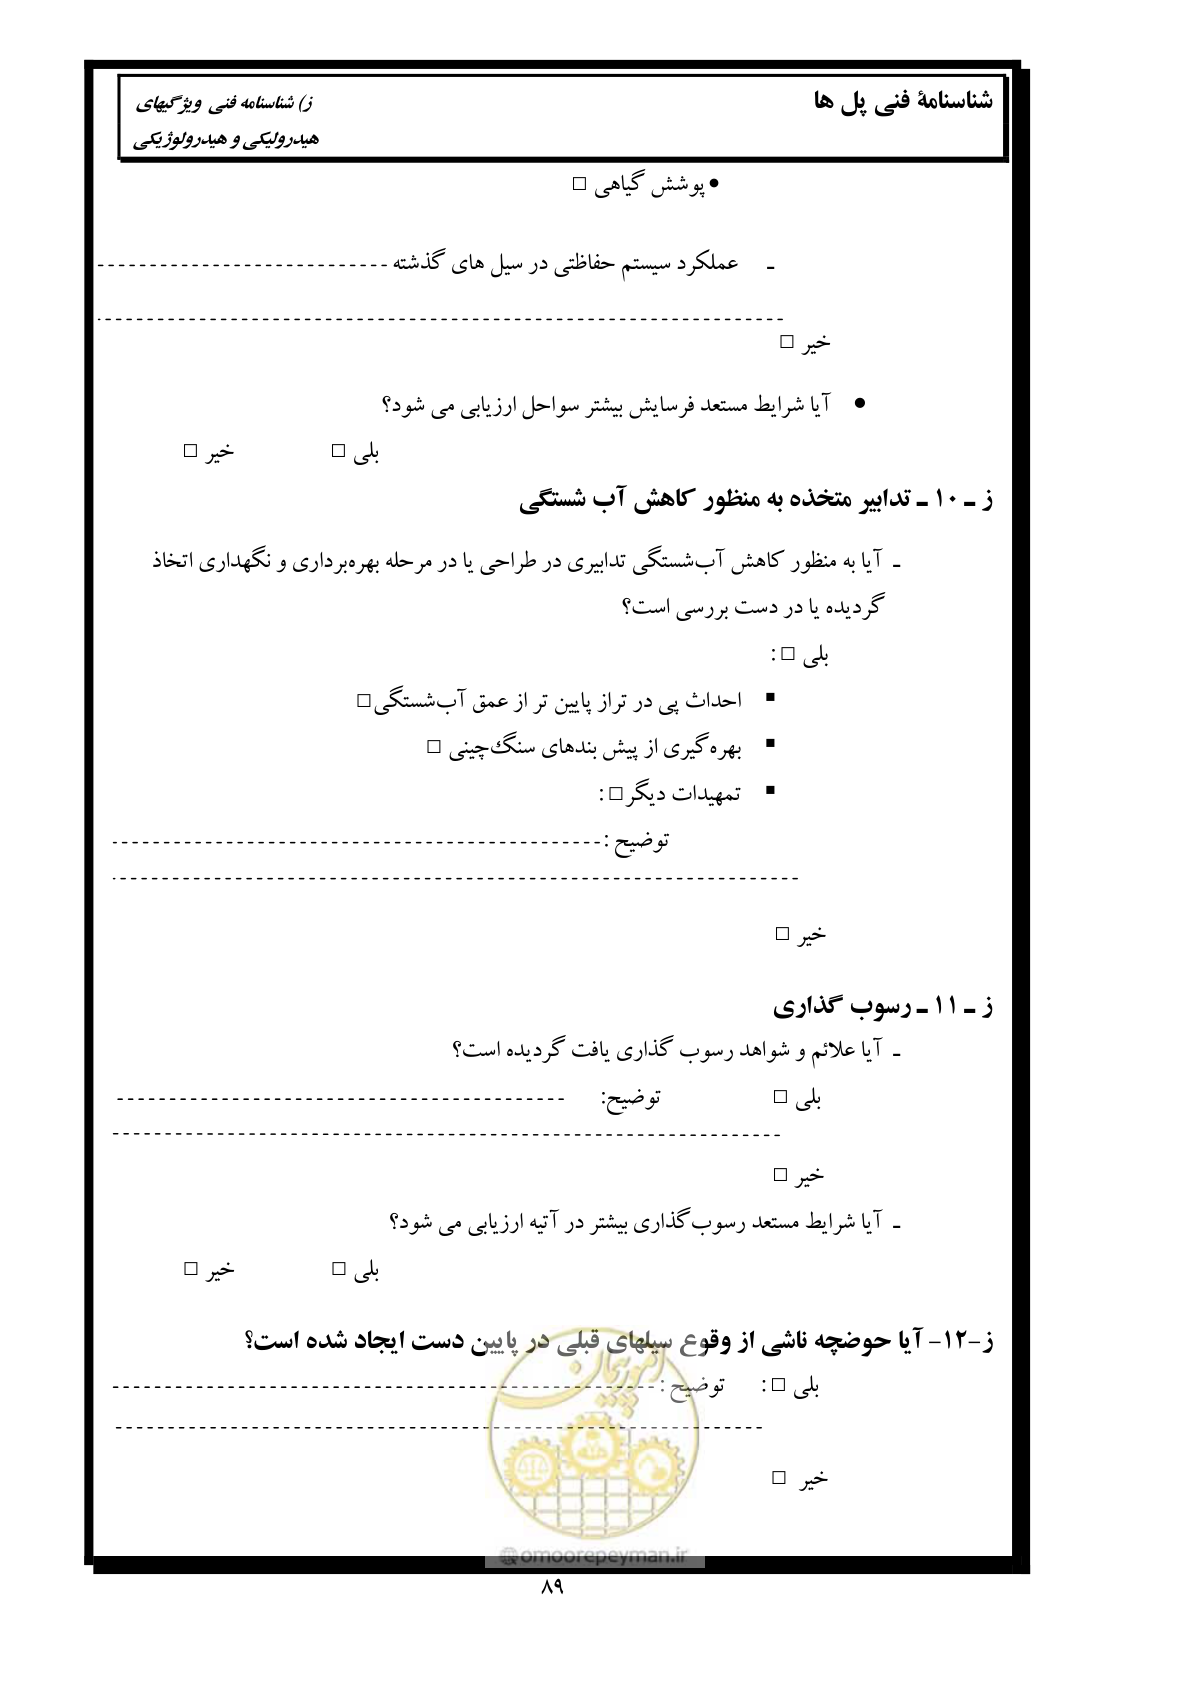 شناسنامهٔ فنی پل ها
ز) شناسنامه فنی ویژگیهای
هیدرولیکی و هیدرولوژیکی
• پوشش گیاهی □
ـ عملکرد سیستم حفاظتی در سیل های گذشته ----------------------------
------------------------------------------------------------------
خیر □
• آیا شرایط مستعد فرسایش بیشتر سواحل ارزیابی می شود؟
بلی □ خیر □
ز ـ ۱۰ ـ تدابیر متخذه به منظور کاهش آب شستگی
ـ آیا به منظور کاهش آب‌شستگی تدابیری در طراحی یا در مرحله بهره‌برداری و نگهداری اتخاذ
گردیده یا در دست بررسی است؟
بلی □ :
▪ احداث پی در تراز پایین تر از عمق آب‌شستگی□
▪ بهره‌گیری از پیش بندهای سنگ‌چینی □
▪ تمهیدات دیگر□ :
توضیح : -----------------------------------------------
------------------------------------------------------------------
خیر □
ز ـ ۱۱ ـ رسوب گذاری
ـ آیا علائم و شواهد رسوب گذاری یافت گردیده است؟
بلی □ توضیح: -------------------------------------------
----------------------------------------------------------------
خیر □
ـ آیا شرایط مستعد رسوب‌گذاری بیشتر در آتیه ارزیابی می شود؟
بلی □ خیر □
ز-۱۲- آیا حوضچه ناشی از وقوع سیلهای قبلی در پایین دست ایجاد شده است؟
بلی □ : توضیح : ----------------------------------------------------
--------------------------------------------------------------
خیر □
امور پیمان
@omoorepeyman.ir
۸۹